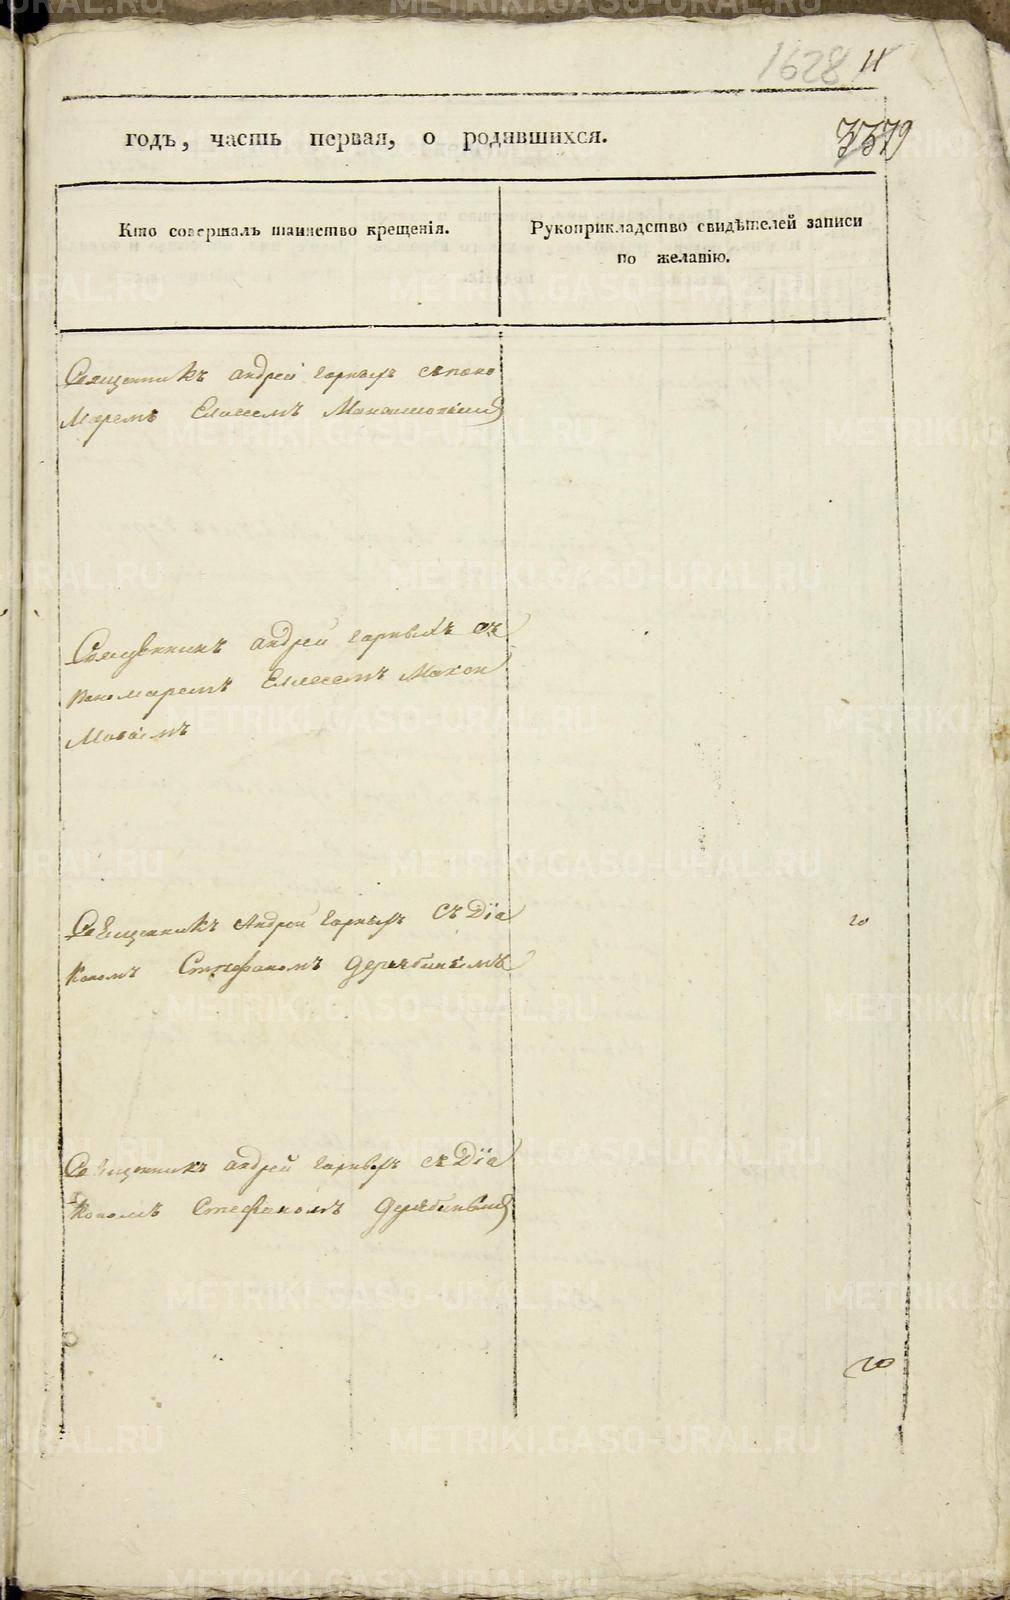 1628 11
годъ, часть первая, о родившихся.
3379
Кто совершалъ таинство крещенія.
Рукоприкладство свидѣтелей записи
по желанію.
Священникъ андрей горныхъ съ поно
маремъ Елисеемъ
Священникъ андрей горныхъ съ
пономаремъ Елисеемъ
Священникъ Андрей горныхъ Съ Діа
кономъ Стефаномъ дерябинымъ
20
Священникъ андрей горныхъ съ Діа
кономъ Стефаномъ дерябинымъ
20
METRIKI.GASO-URAL.RU